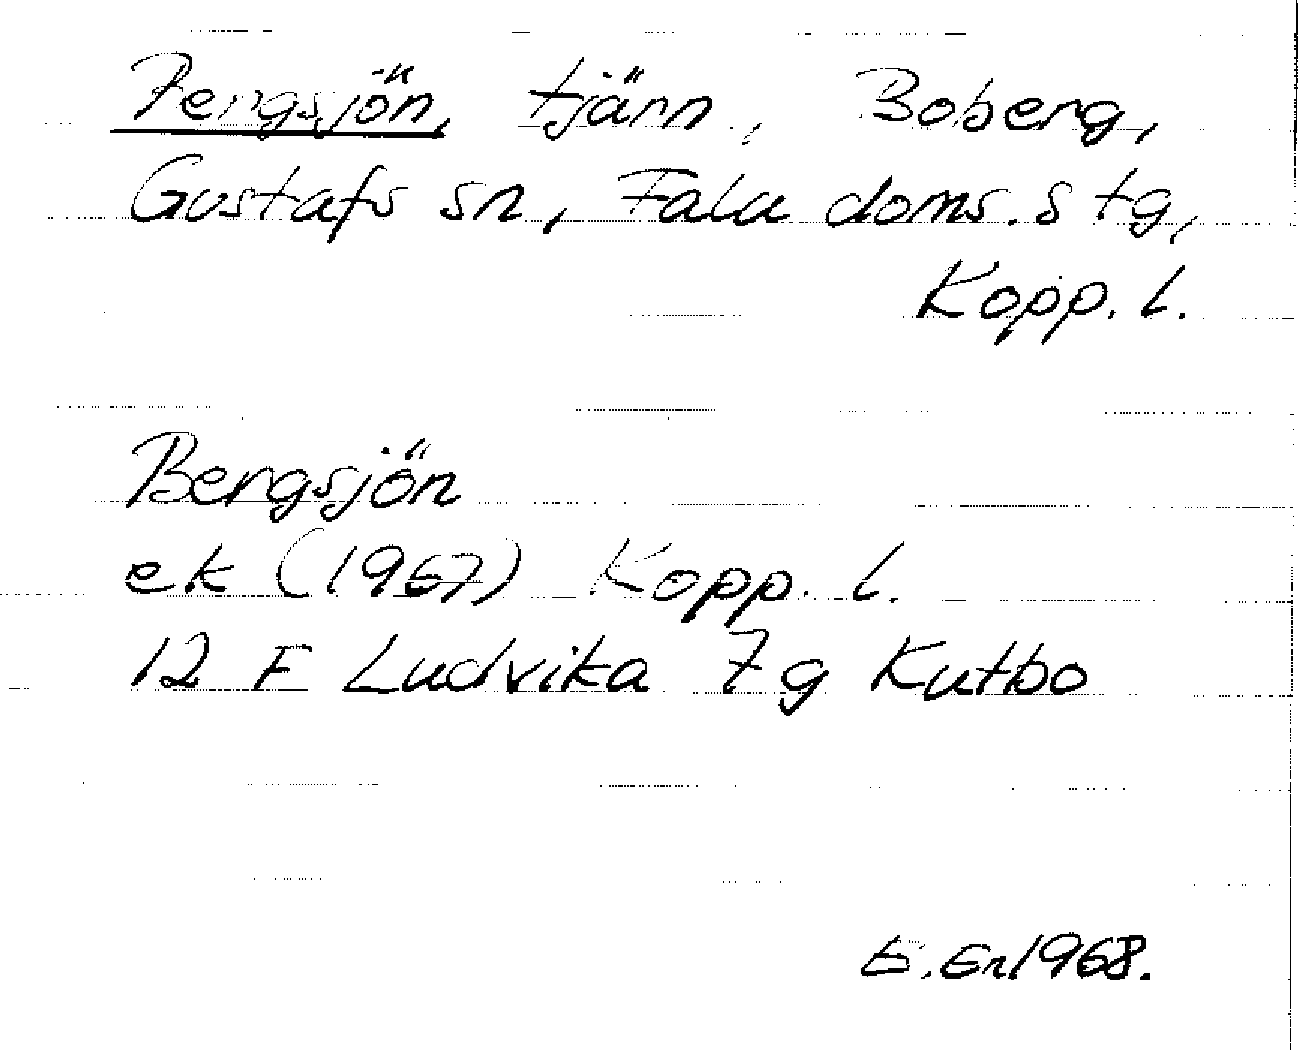 Bergsjön, tjärn, Boberg,
Gustafs sn, Falu doms. s tg,
Kopp. l.
Bergsjön
ek (1967) Kopp. l.
12 F Ludvika 7 g Kutbo
1968.